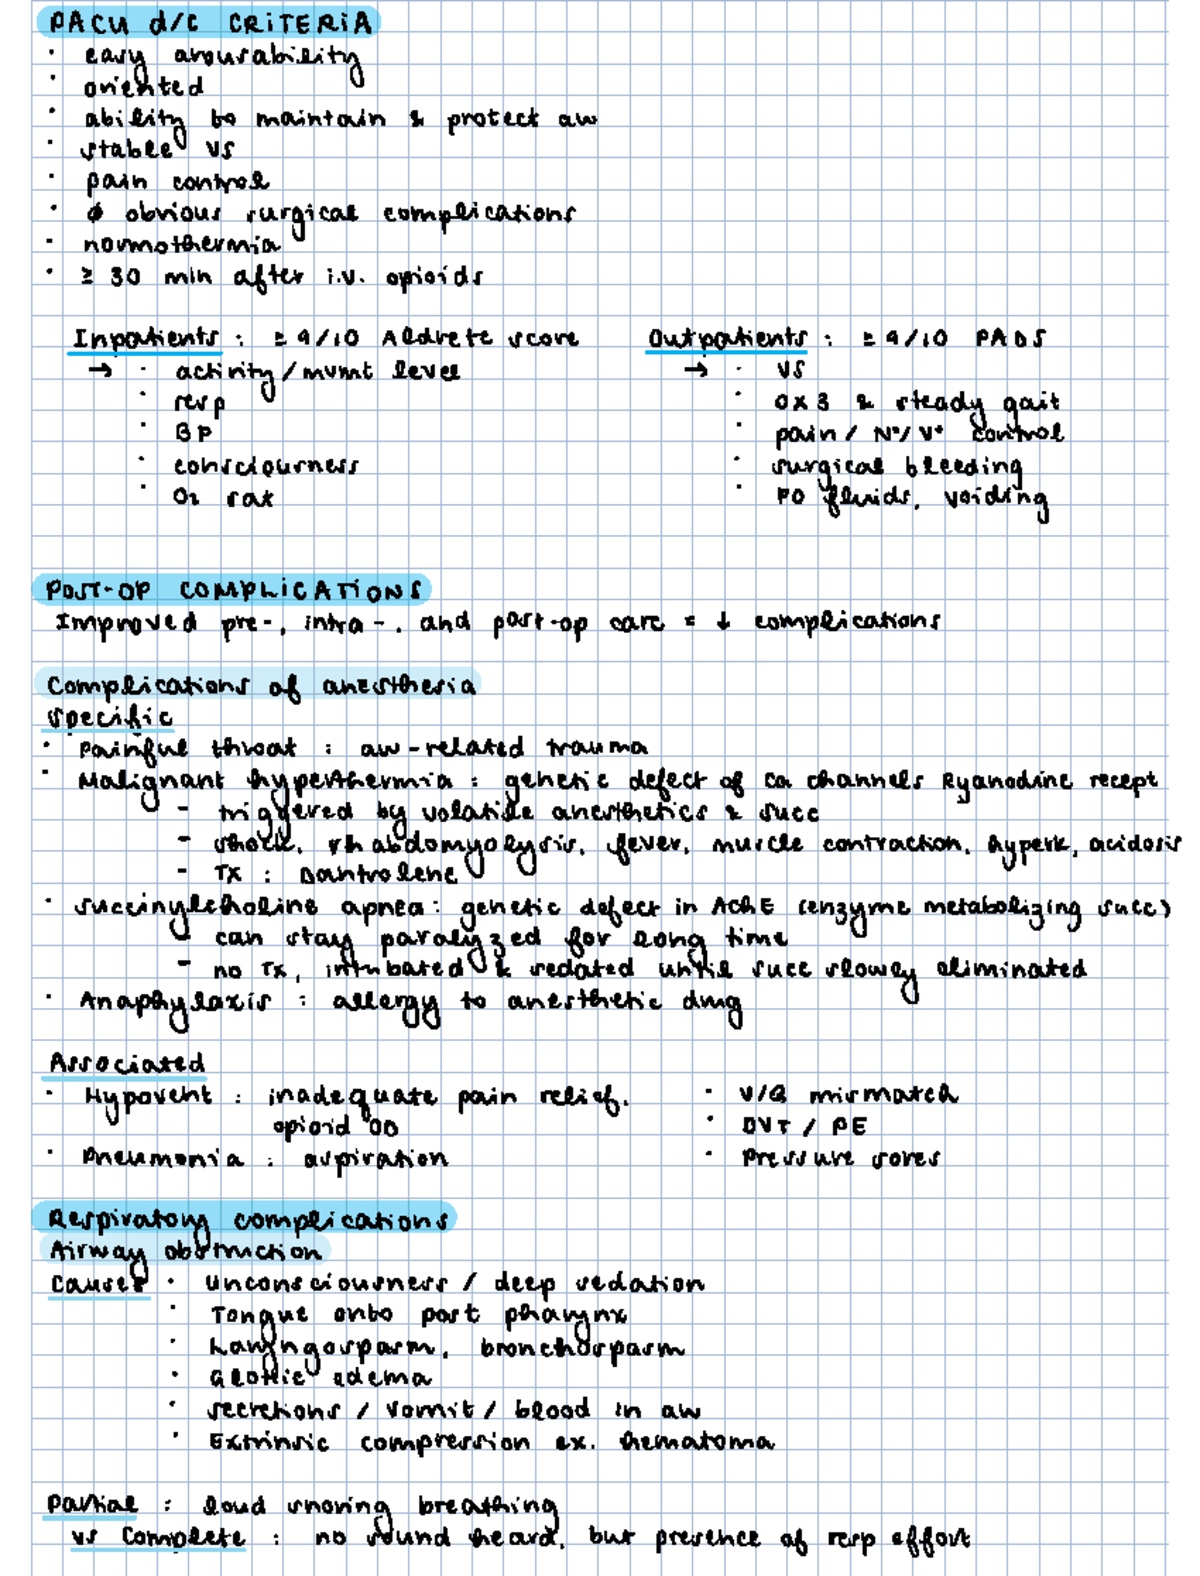 PACU d/c CRITERIA
· easy arousability
· oriented
· ability to maintain & protect aw
· stable VS
· pain control
· ∅ obvious surgical complications
· normothermia
· ≥ 30 min after i.v. opioids
Inpatients : ≥ 9/10 Aldrete score
→ · activity/mvmt level
· resp
· BP
· consciousness
· O2 sat
Outpatients : ≥ 9/10 PADS
→ · VS
· O x 3 & steady gait
· pain / N°/ V° control
· surgical bleeding
· PO fluids, voiding
POST-OP COMPLICATIONS
Improved pre-, intra-, and post-op care = ↓ complications
Complications of anesthesia
Specific
· Painful throat : aw-related trauma
· Malignant hyperthermia : genetic defect of Ca channels Ryanodine recept
- triggered by volatile anesthetics & succ
- shock, rhabdomyolysis, fever, muscle contraction, hyperK, acidosis
- Tx : Dantrolene
· Succinylcholine apnea : genetic defect in AChE (enzyme metabolizing succ)
- can stay paralyzed for long time
- no Tx, intubated & sedated until succ slowly eliminated
· Anaphylaxis : allergy to anesthetic drug
Associated
· Hypovent : inadequate pain relief,
opioid OD
· Pneumonia : aspiration
· V/Q mismatch
· DVT / PE
· Pressure sores
Respiratory complications
Airway obstruction
Causes · Unconsciousness / deep sedation
· Tongue onto post pharynx
· Laryngospasm, bronchospasm
· Glottic edema
· Secretions / vomit / blood in aw
· Extrinsic compression ex. hematoma
Partial : loud snoring breathing
vs Complete : no sound heard, but presence of resp effort